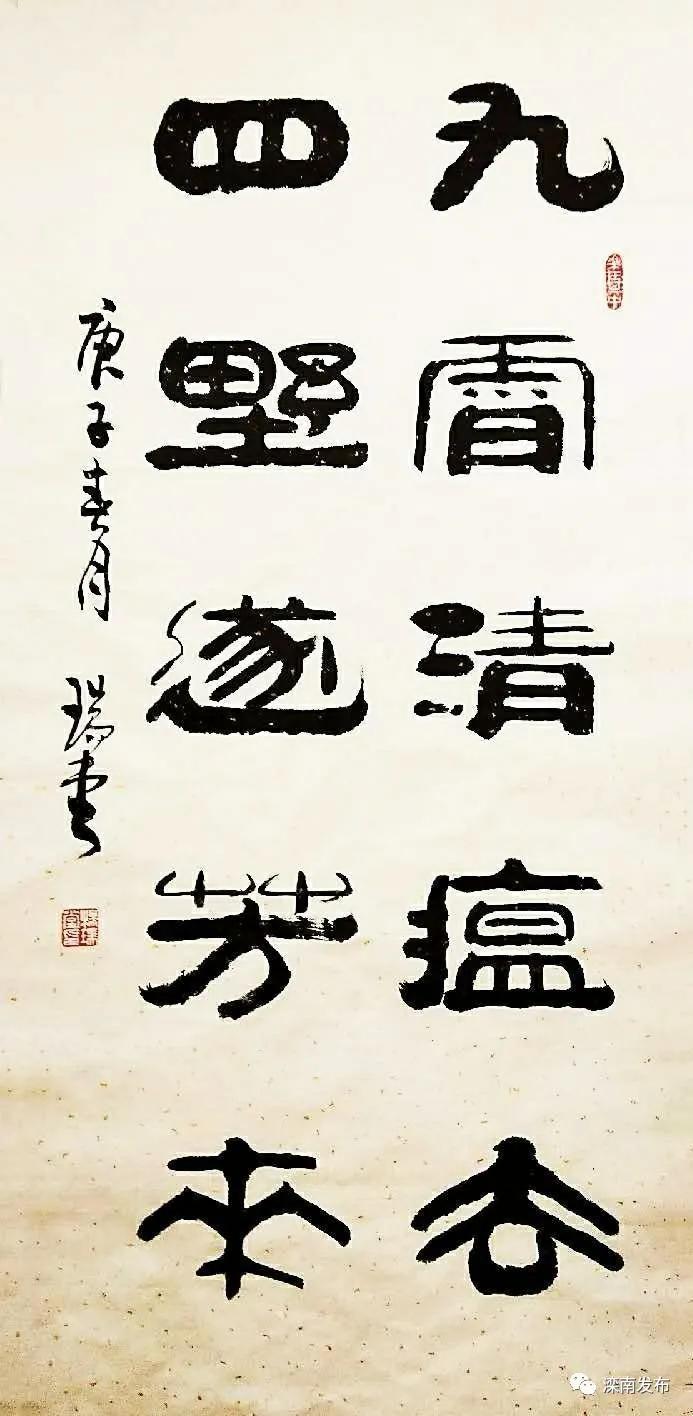 九霄清瘟去
四野遂芳来
庚子春月 瑞书
滦南发布